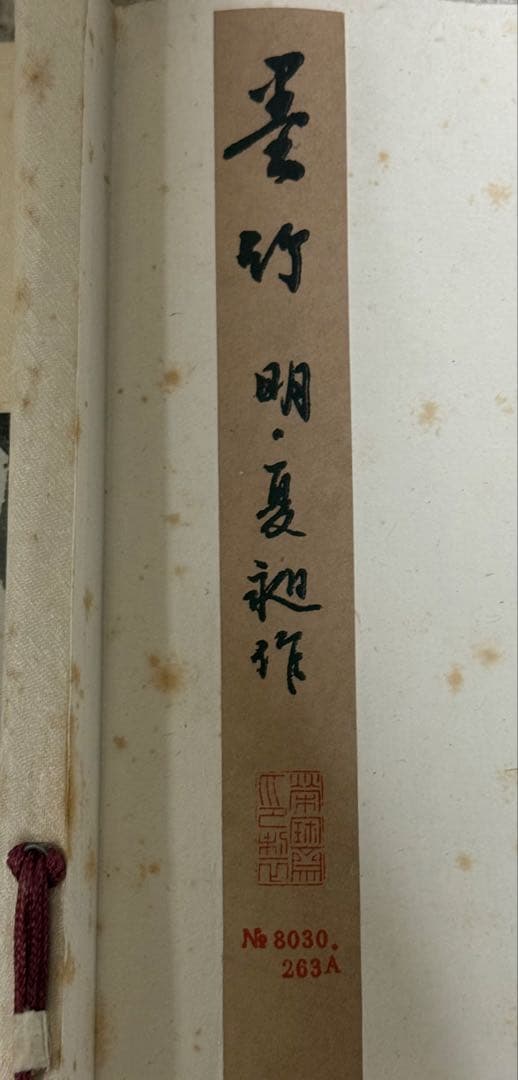 墨竹 明·夏昶作
荣宝斋
№ 8030.
263A